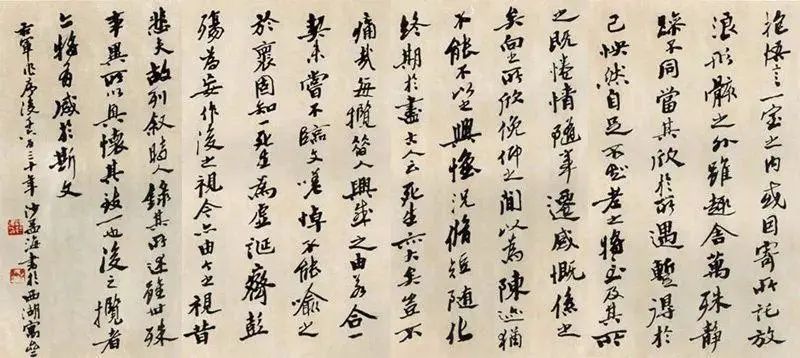 抱悟言一室之内或因寄所託放
浪形骸之外雖趣舍萬殊靜
躁不同當其欣於所遇暫得於
己怏然自足不知老之將至及其所
之既惓情隨事遷感慨係之
矣向之所欣俛仰之間以為陳迹猶
不能不以之興懷況脩短隨化
終期於盡古人云死生亦大矣豈不
痛哉每攬昔人興感之由若合一
契未嘗不臨文嗟悼不能喻之
於褱固知一死生為虛誕齊彭
殤為妄作後之視今亦由今之視昔
悲夫故列叙時人錄其所述雖世殊
事異所以興懷其致一也後之攬者
亦將有感於斯文
右軍作序後千六百三十年沙孟海書於西湖寓